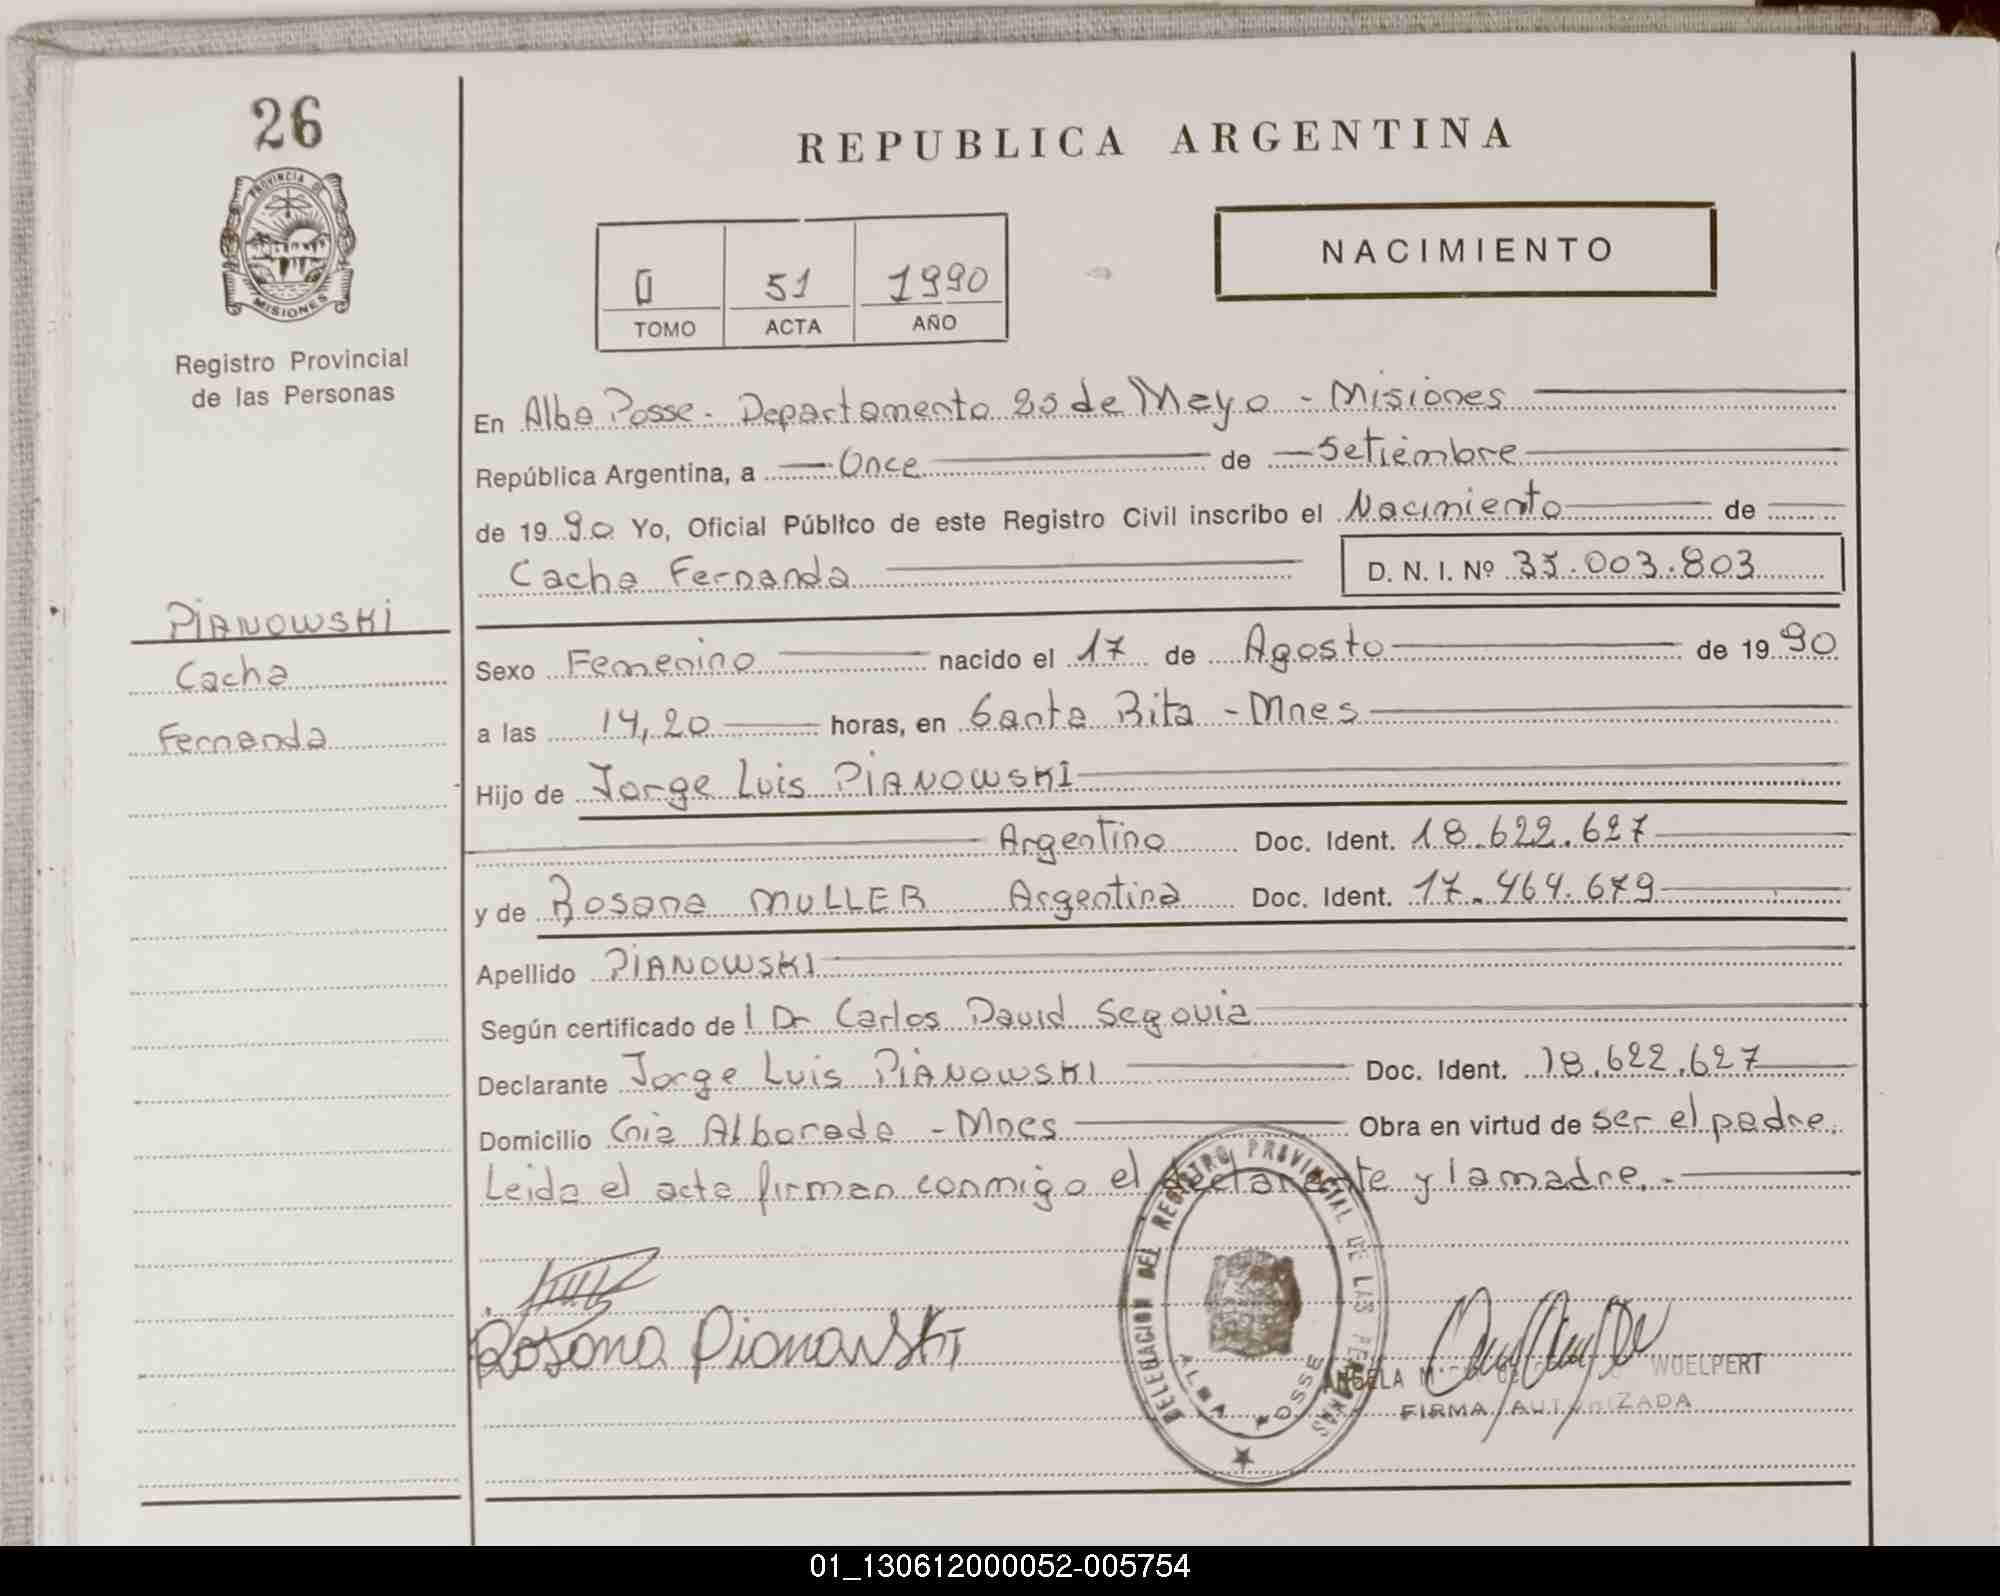 26
PROVINCIA DE
MISIONES
Registro Provincial
de las Personas
REPUBLICA ARGENTINA
NACIMIENTO
51 1990
TOMO ACTA AÑO
En Alba Posse. Departamento 25 de Mayo - Misiones
República Argentina, a Once de Setiembre
de 19 90 Yo, Oficial Público de este Registro Civil inscribo el Nacimiento de
Cacha Fernanda D. N. I. Nº 35.003.803
PIANOWSKI
Cacha
Fernanda
Sexo Femenino nacido el 17 de Agosto de 19 90
a las 14,20 horas, en Santa Rita - Mnes
Hijo de Jorge Luis PIANOWSKI
Argentino Doc. Ident. 18.622.627
y de Rosana MULLER Argentina Doc. Ident. 17.464.679
Apellido PIANOWSKI
Según certificado de l Dr Carlos David Segovia
Declarante Jorge Luis PIANOWSKI Doc. Ident. 18.622.627
Domicilio Cnia Alborada - Mnes Obra en virtud de ser el padre.
Leida el acta firman conmigo el declarante y la madre.-
Rosana Pianowski
DELEGACION DEL REGISTRO PROVINCIAL DE LAS PERSONAS
ALBA POSSE
ANGELA WOELPERT
FIRMA AUTORIZADA
01_130612000052-005754